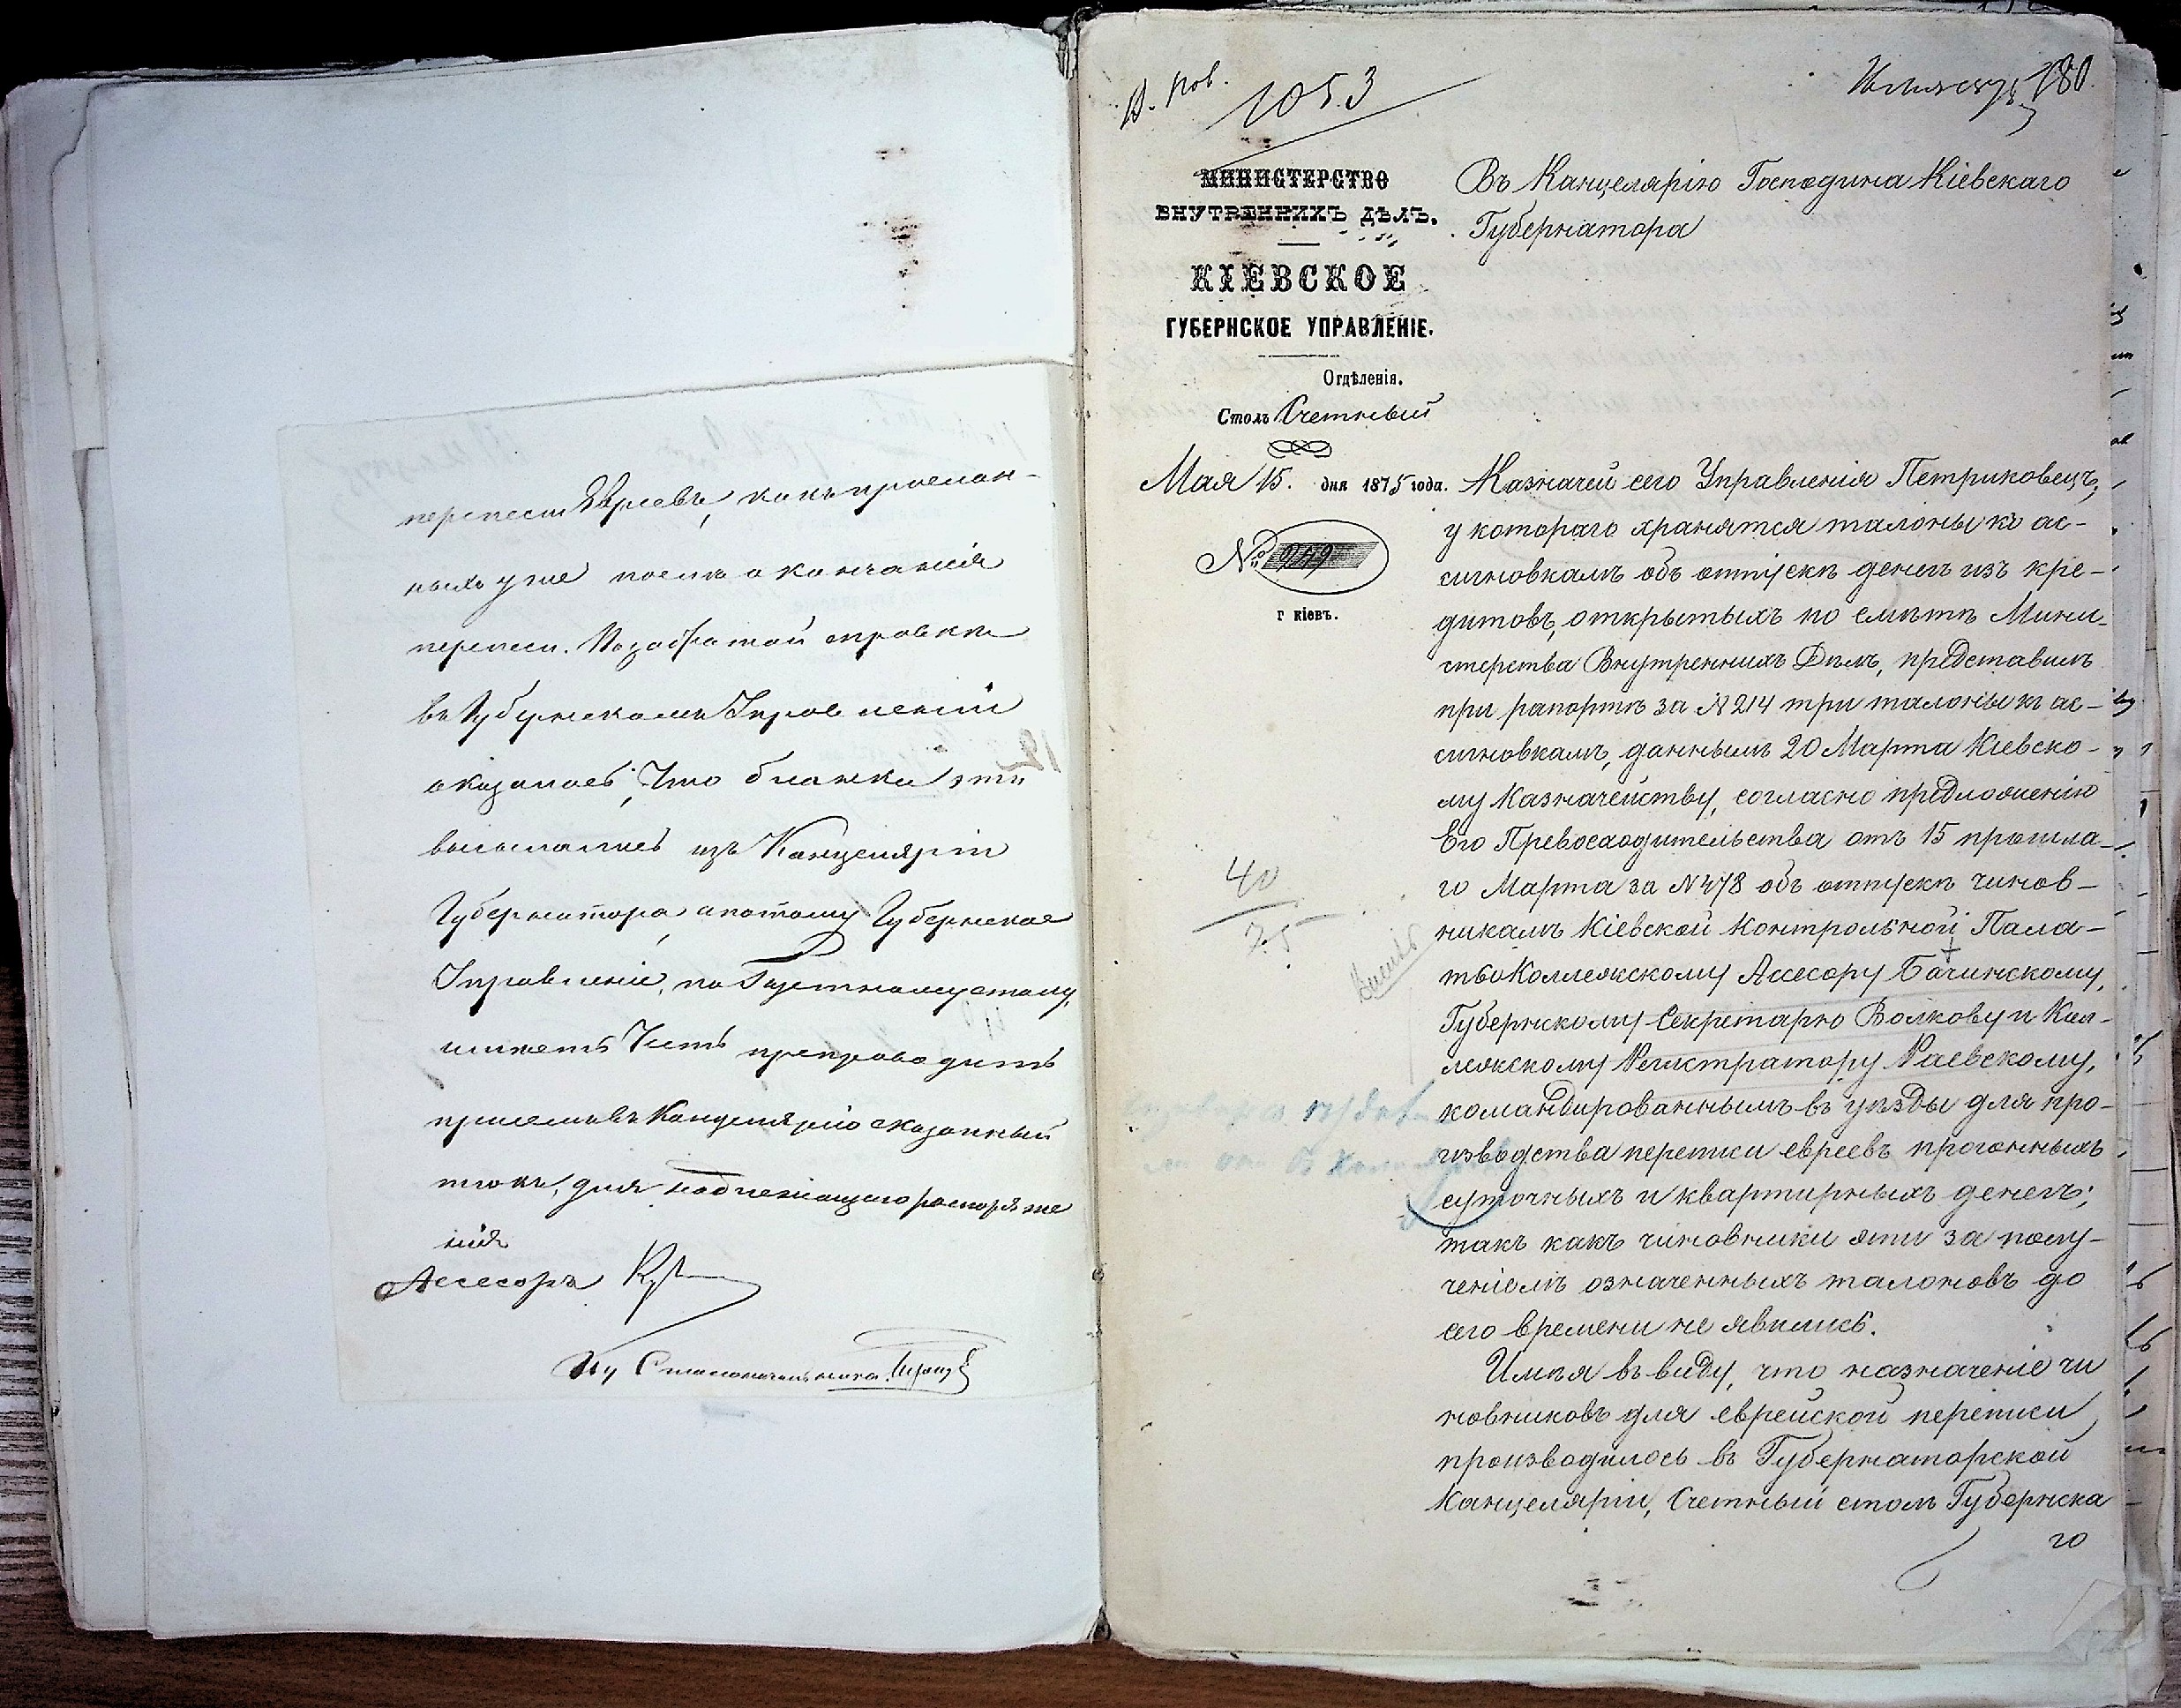 переписи Евреевъ, какъ прислан-
ныхъ уже послѣ окончанія
переписи. По забратой справкѣ
въ Губернскомъ Управленіи
оказалось, что бланки эти
высылались изъ Канцеляріи
Губернатора, а потому Губернское
Управленіе, по Счетному столу,
имѣетъ честь препроводить
при семъ въ Канцелярію сказанный
тюкъ, для надлежащаго распоряже
нія
Ассесоръ
За Столоначальника
1053
180.
МИНИСТЕРСТВО
ВНУТРЕННИХЪ ДѢЛЪ.
КІЕВСКОЕ
ГУБЕРНСКОЕ УПРАВЛЕНІЕ.
Отдѣленія.
Столъ Счетный
Мая 15. дня 1875 года.
№ 949
г кіевъ.
40
75
Въ Канцелярію Господина Кіевскаго
Губернатора
Казначей сего Управленія Петриковецъ,
у котораго хранятся талоны къ ас-
сигновкамъ объ отпускѣ денегъ изъ кре-
дитовъ, открытыхъ по смѣтѣ Мини-
стерства Внутреннихъ Дѣлъ, представилъ
при рапортѣ за № 214 три талоны къ ас-
сигновкамъ, даннымъ 20 Марта Кіевско-
му Казначейству, согласно предложенію
Его Превосходительства отъ 15 прошла-
го Марта за № 478 объ отпускѣ чинов-
никамъ Кіевской Контрольной Пала-
ты Коллежскому Ассесору Бачинскому,
Губернскому Секретарю Волкову и Кол-
лежскому Регистратору Раевскому,
командированнымъ въ уѣзды для про-
изводства переписи евреевъ прогонныхъ
суточныхъ и квартирныхъ денегъ;
такъ какъ чиновники эти за полу-
ченіемъ означенныхъ талоновъ до
сего времени не явились.
Имѣя въ виду, что назначеніе чи
новниковъ для еврейской переписи
производилось въ Губернаторской
Канцеляріи, Счетный столъ Губернска
го